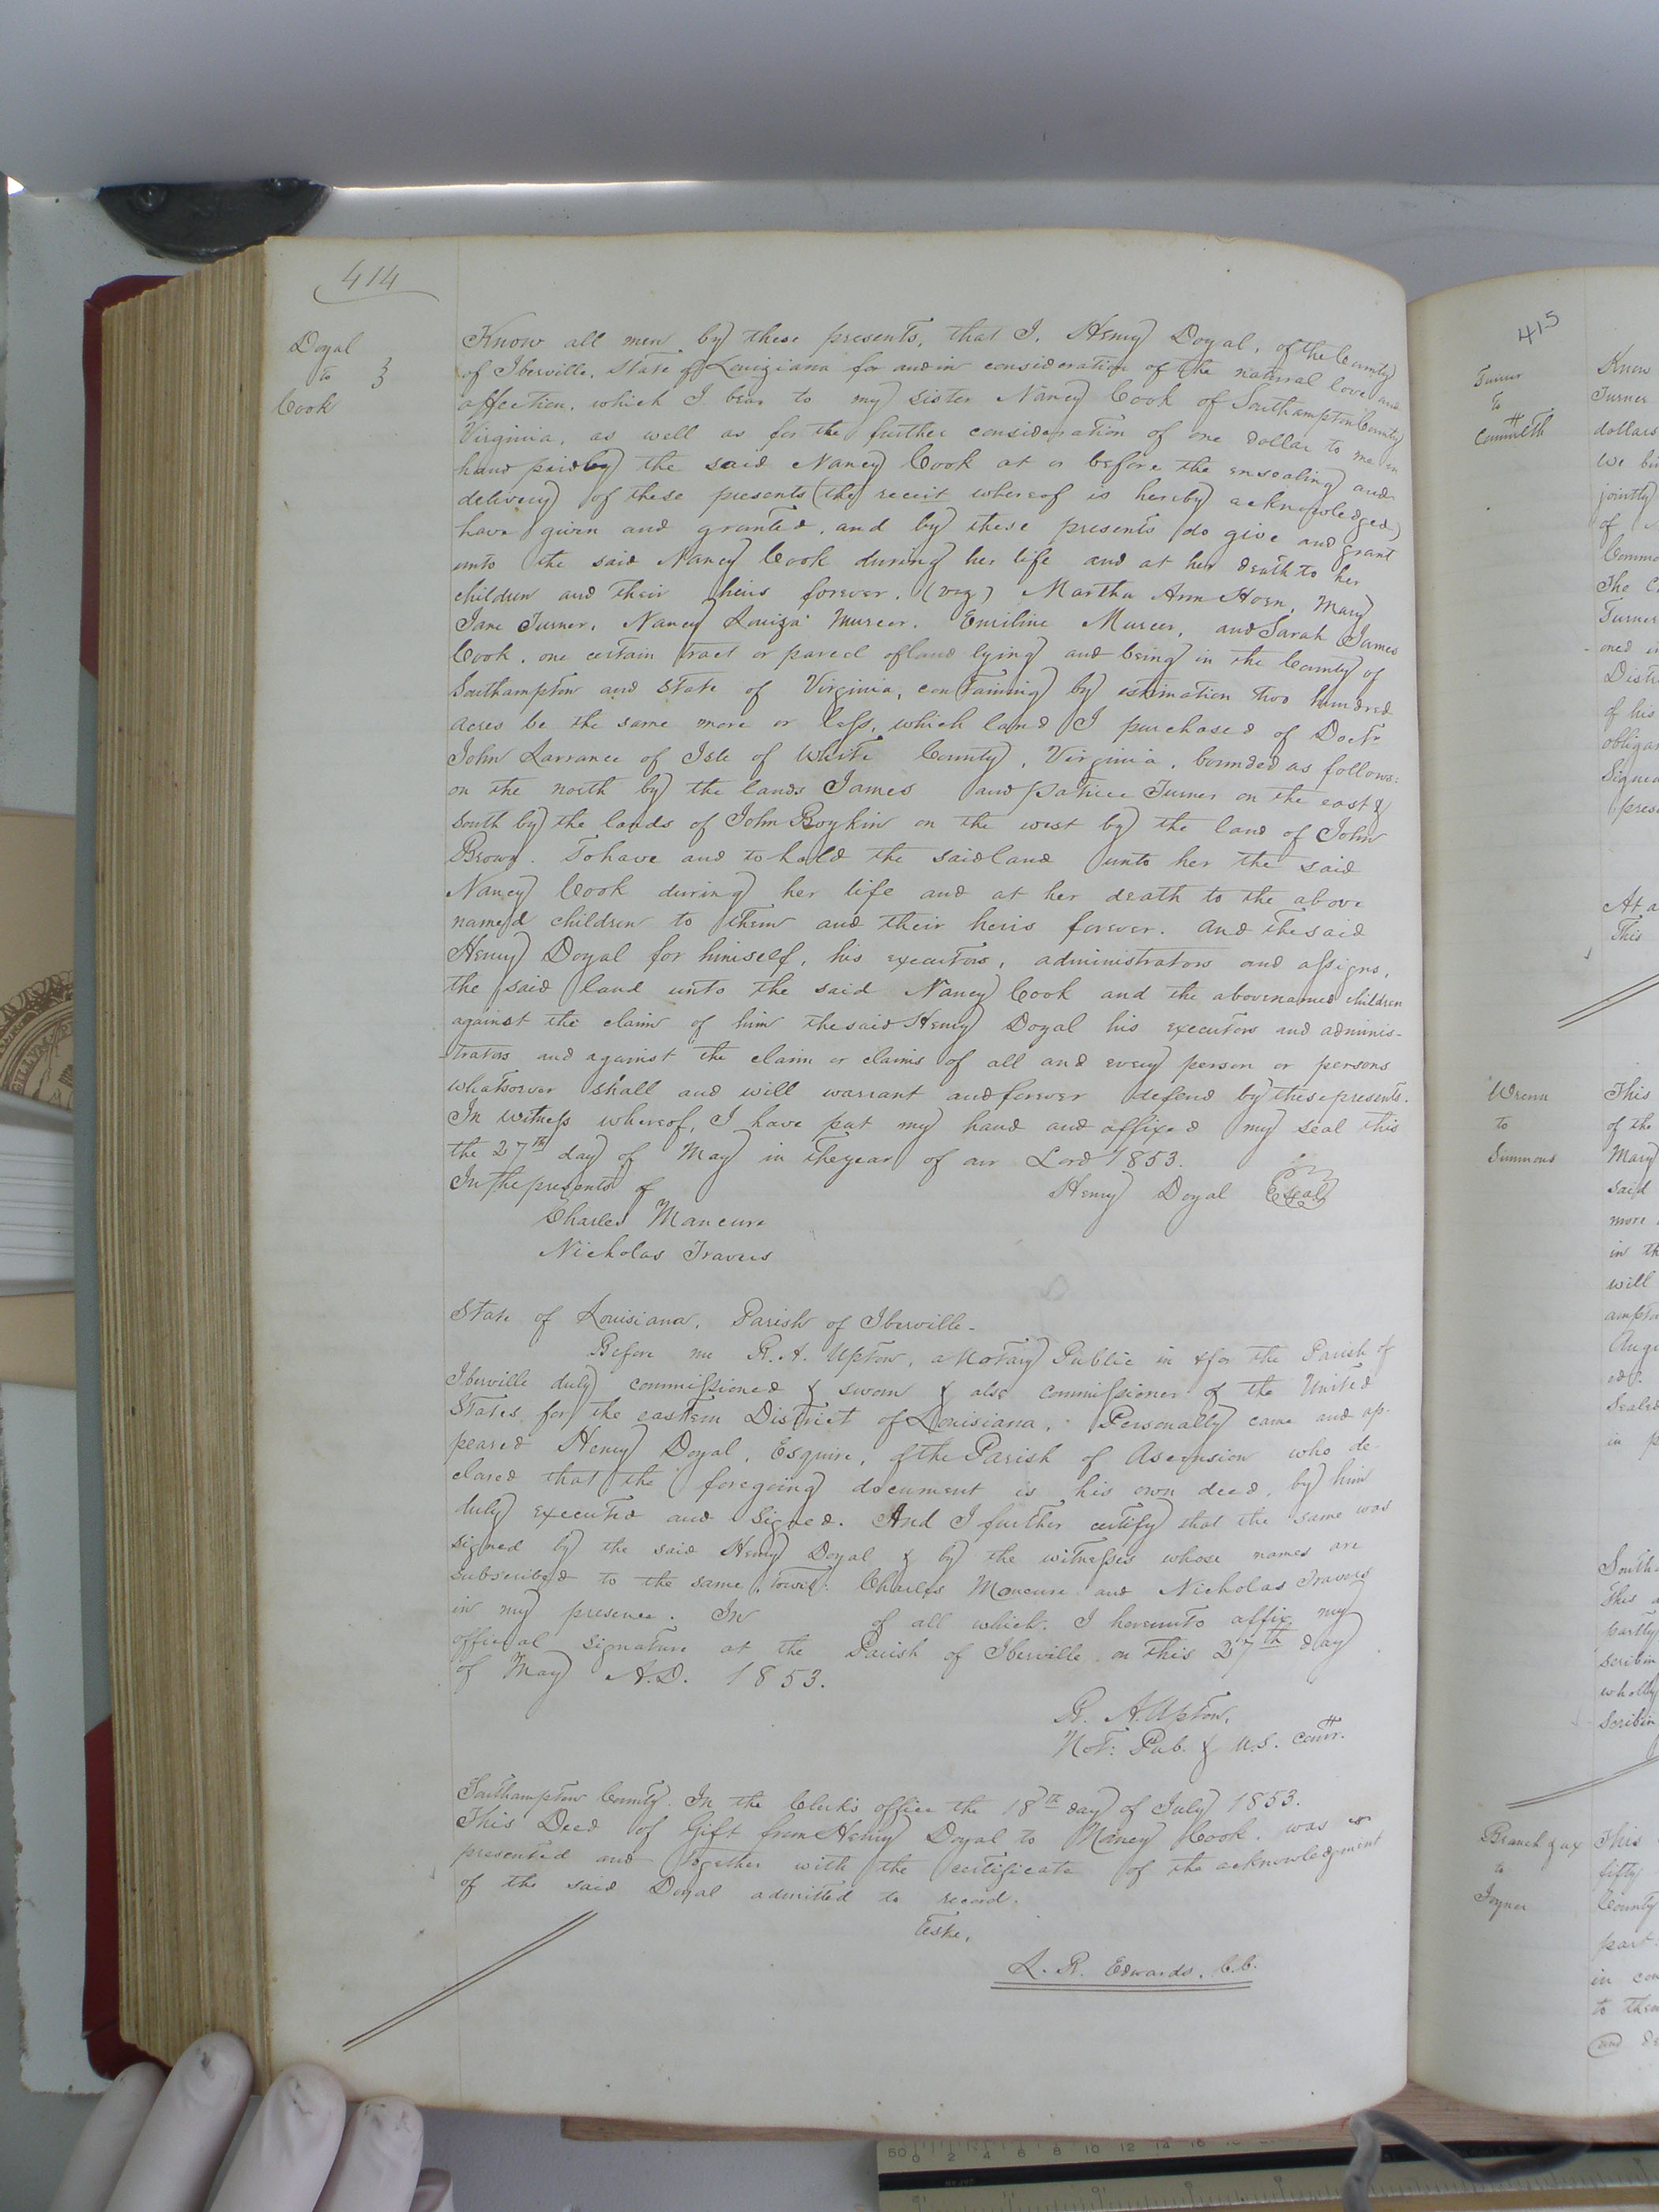 414
Doyal
to
Cook
Know all men by these presents, that I, Henry Doyal, of the County
of Iberville, State of Louiziana for and in consideration of the natural love and
affection, which I bear to my sister Nancy Cook of Southampton County
Virginia, as well as for the further consideration of one dollar to me in
hand paid by the said Nancy Cook at or before the ensealing and
delivery of these presents (the receit whereof is hereby acknowledged)
have given and granted, and by these presents do give and grant
unto the said Nancy Cook during her life and at her death to her
children and their heirs forever. (viz) Martha Ann Horn, Mary
Jane Turner, Nancy Louiza Murcer, Emiline Murcer, and Sarah James
Cook, one certain tract or parcel of land lying and being in the County of
Southampton and State of Virginia, containing by estimation two hundred
acres be the same more or less, which land I purchased of Doctr
John Larrance of Isle of White County, Virginia, bounded as follows:
on the north by the lands James and Patience Turner on the east &
South by the lands of John Boykin on the west by the land of John
Brown. To have and to hold the said land unto her the said
Nancy Cook during her life and at her death to the above
named children to them and their heirs forever. And the said
Henry Doyal for himself, his executors, administrators and assigns,
the said land unto the said Nancy Cook and the above named children
against the claim of him the said Henry Doyal his executors and adminis-
trators and against the claim or claims of all and every person or persons
whatsoever shall and will warrant and forever defend by these presents.
In witness whereof, I have put my hand and affixed my seal this
the 27th day of May in the year of our Lord 1853.
In the presents of
Henry Doyal Seal
Charles Mancure
Nicholas Travers
State of Louisiana, Parish of Iberville-
Before me R. A. Upton, a Notary Public in & for the Parish of
Iberville duly commissioned & sworn & also commissioner of the United
States for the eastern District of Louisiana, Personally came and ap-
peared Henry Doyal, Esquire, of the Parish of Ascension who de-
clared that the foregoing document is his own deed, by him
duly executed and signed. And I further certify that the same was
signed by the said Henry Doyal & by the witnesses whose names are
subscribed to the same, towit: Charles Moncure and Nicholas Travers
in my presence. In of all which, I hereunto affix my
official signature at the Parish of Iberville on this 27th day
of May A.D. 1853.
R. A. Upton,
Not: Pub. & U.S. Comr.
Southampton County. In the Clerk's office the 18th day of July 1853.
This Deed of Gift from Henry Doyal to Nancy Cook was
presented and together with the certificate of the acknowledgment
of the said Doyal admitted to record.
Teste,
L. R. Edwards, C.C.
415
Turner
to
Commlth
Know
Turner
dollars
We bi
jointly
of
Commo
The C
Turner
oned in
Distr
of his
obligat
Signed
pres
At a
This
Wrenn
to
Simmons
This
of the
Mary
said
more
in th
will
ampto
Augu
ed.
Sealed
in p
South
This
partly
scribin
wholly
Scribin
Branch & ux
to
Joyner
This
fifty
County
part
in con
to them
and de
50 0 2 4 6 8 10 12 14 16